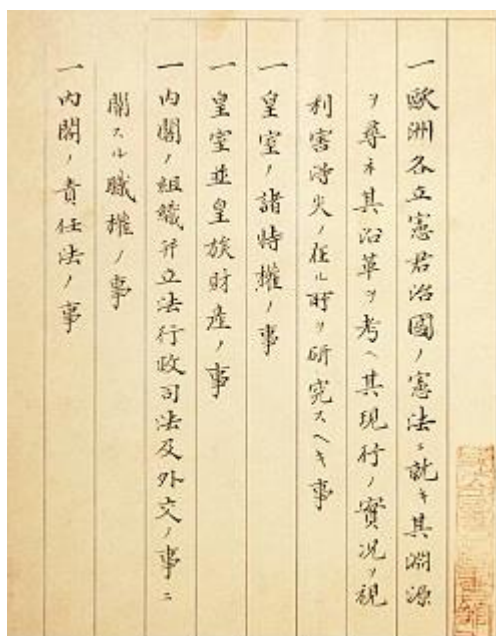 一歐洲各立憲君治國ノ憲法ニ就キ其淵源
ヲ尋ネ其沿革ヲ考ヘ其現行ノ實況ヲ視
利害得失ノ在ル所ヲ研究スヘキ事
一皇室ノ諸特權ノ事
一皇室並皇族財産ノ事
一内閣ノ組織并立法行政司法及外交ノ事ニ
關スル職權ノ事
一内閣ノ責任法ノ事